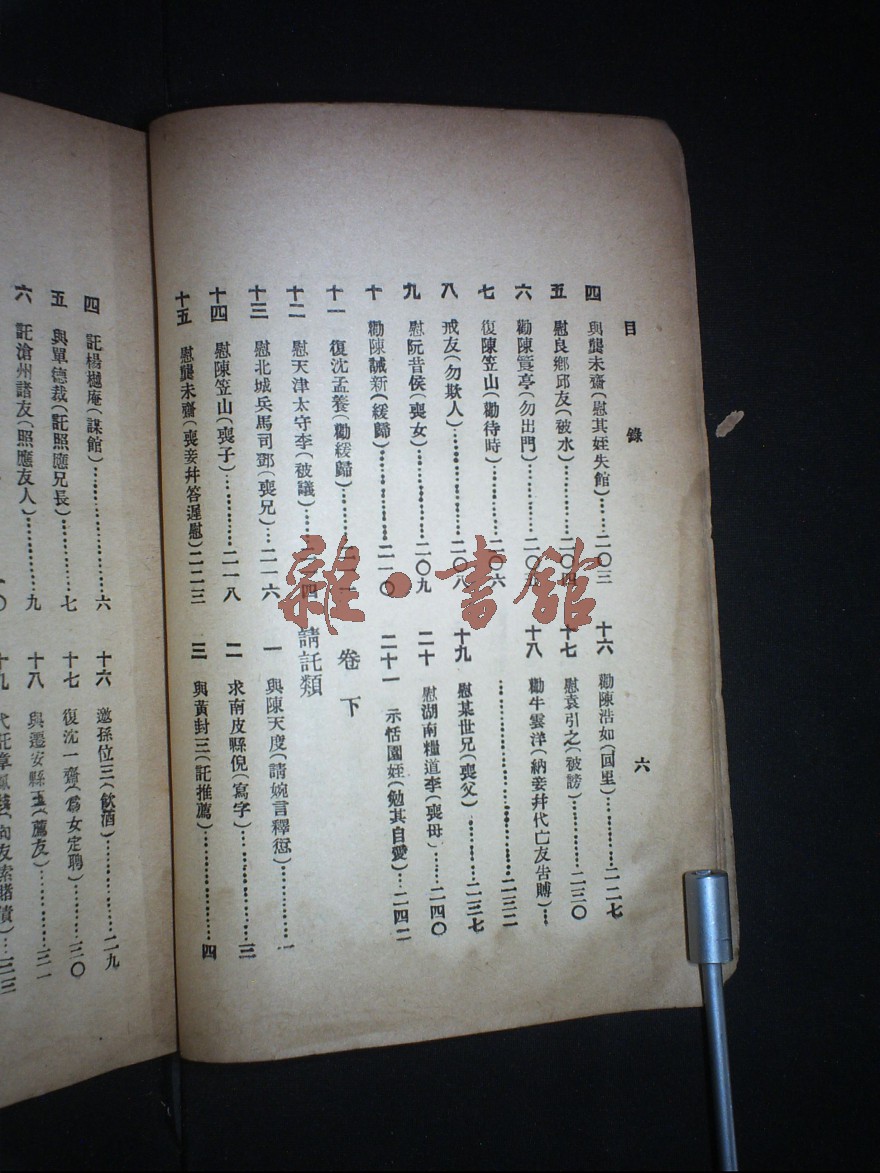 目錄 六
四 與龔未齋(慰其姪失館)……二〇三
五 慰良鄉邱友(被水)……二〇四
六 勸陳賓亭(勿出門)……二〇五
七 復陳笠山(勸待時)……二〇六
八 戒友(勿欺人)……二〇八
九 慰阮昔侯(喪女)……二〇九
十 勸陳誠新(緩歸)……二一〇
十一 復沈孟養(勸緩歸)……二一
十二 慰天津太守李(被議)……二一四
十三 慰北城兵馬司鄧(喪兄)……二一六
十四 慰陳笠山(喪子)……二一八
十五 慰龔未齋(喪妾幷答遲慰)二二三
十六 勸陳浩如(回里)……二二七
十七 慰袁引之(被謗)……二三〇
十八 勸牛雲洋(納妾幷代亡友告賻)……
……二三二
十九 慰某世兄(喪父)……二三七
二十 慰湖南糧道李(喪母)……二四〇
二十一 示恬園姪(勉其自愛)…二四二
卷下
請託類
一 與陳天度(請婉言釋愆)……一
二 求南皮縣倪(寫字)……三
三 與黃封三(託推薦)……四
四 託楊樾庵(謀館)……六
五 與單德裁(託照應兄長)……七
六 託滄州諸友(照應友人)……九
〇
十六 邀孫位三(飲酒)……二九
十七 復沈一齋(爲女定聘)……三〇
十八 與遷安縣王(薦友)……三一
十九 代託章 向友索賭債)…三三
雜·書館